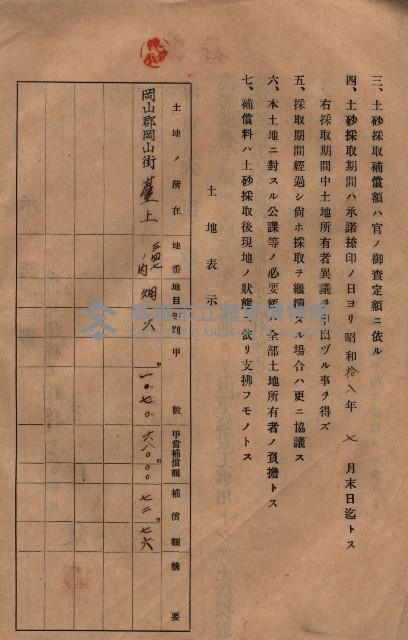 三、土砂採取補償額ハ官ノ御査定額ニ依ル
四、土砂採取期間ハ承諾捺印ノ日ヨリ昭和拾八年七月末日迄トス
右採取期間中土地所有者異議ヲ申出ヅル事ヲ得ズ
五、採取期間經過シ尙ホ採取ヲ繼續スル場合ハ更ニ協議ス
六、本土地ニ對スル公課等ノ必要經費ハ全部土地所有者ノ負擔トス
七、補償料ハ土砂採取後現地ノ狀態ニ依リ支拂フモノトス
土地表示
土地ノ所在 地番 地目 則 甲數 甲當補償額 補償額 摘要
岡山郡岡山街臺上 內 畑 六 一〇七〇 六八〇〇〇 七二七六
高雄市立歷史博物館